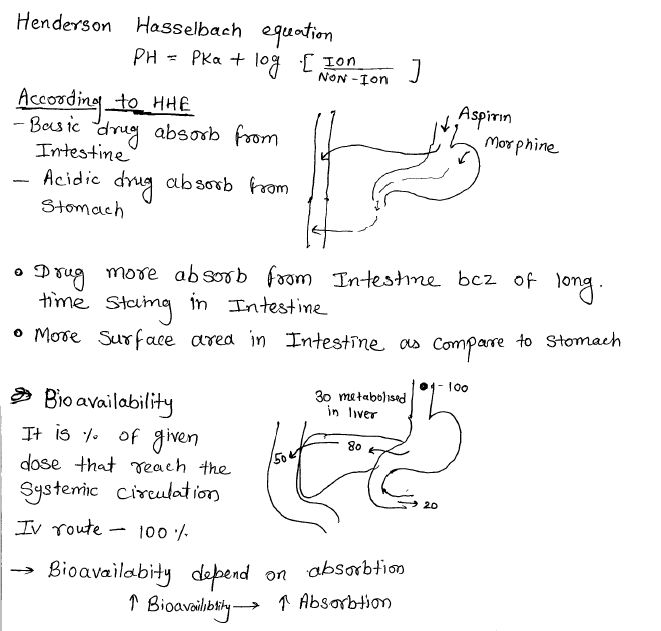 Henderson Hasselbach equation
PH = PKa + log [ Ion / NON-Ion ]
According to HHE
- Basic drug absorb from
Intestine
- Acidic drug absorb from
Stomach
Aspirin
Morphine
• Drug more absorb from Intestine bcz of long.
time Staing in Intestine
• More Surface area in Intestine as compare to stomach
Bioavailability
It is % of given
dose that reach the
Systemic circulation
IV route - 100 %
30 metabolised
in liver
- 100
80
50
20
→ Bioavailabity depend on absorbtion
↑ Bioavailiblity → ↑ Absorbtion